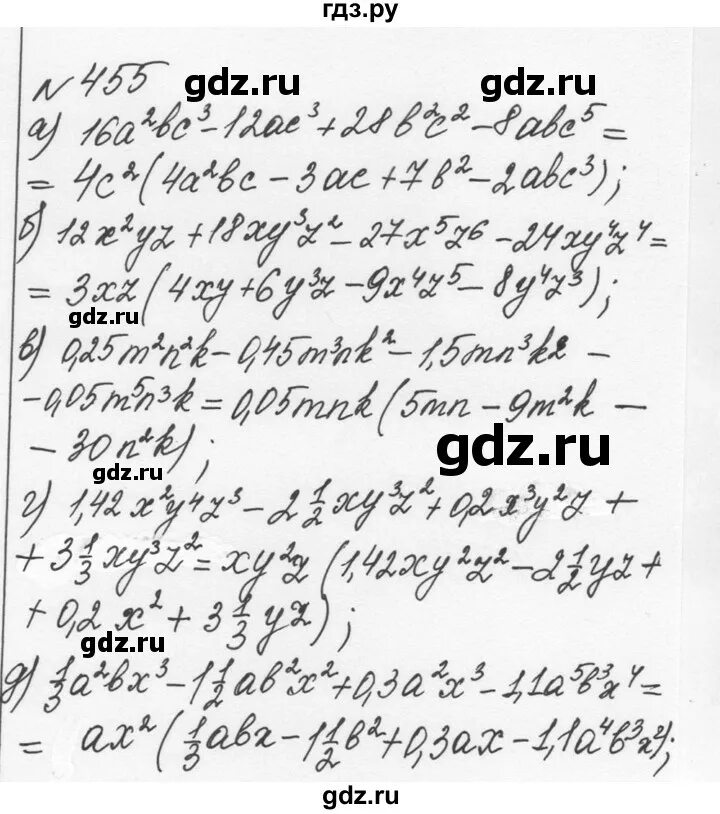 гдз.ру
№ 455
gdz.ru gdz.ru
а) 16a²bc³ - 12ac³ + 28b²c² - 8abc⁵ =
= 4c²(4a²bc - 3ac + 7b² - 2abc³);
б) 12x²yz + 18xy³z² - 27x⁵z⁶ - 24xy⁴z⁴ =
= 3xz(4xy + 6y³z - 9x⁴z⁵ - 8y⁴z³);
gdz.ru
в) 0,25m²n²k - 0,45m³nk² - 1,5mn³k2 -
- 0,05m⁵n³k = 0,05mnk(5mn - 9m²k -
- 30n²k);
gdz.ru gdz.ru
г) 1,42x²y⁴z³ - 2 1/2 xy³z² + 0,2x³y²z +
+ 3 1/3 xy³z² = xy²z (1,42xy²z² - 2 1/2 yz +
+ 0,2x² + 3 1/3 yz);
gdz.ru gdz.ru
д) 1/3 a²bx³ - 1 1/2 ab²x² + 0,3a²x³ - 1,1a⁵b³x⁴ =
= ax²(1/3 abx - 1 1/2 b² + 0,3ax - 1,1a⁴b³x²);
gdz.ru